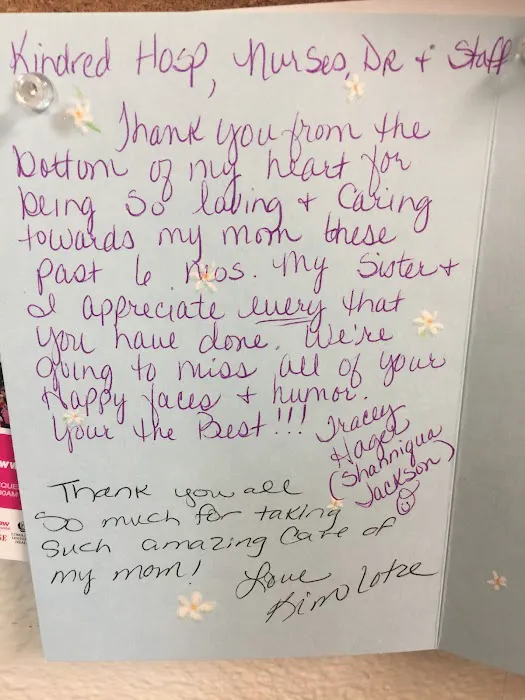 Kindred Hosp, Nurses, DR + Staff
Thank you from the
bottom of my heart for
being so loving + Caring
towards my mom these
past 6 mos. My Sister +
I appreciate every that
you have done. We're
going to miss all of your
Happy faces + humor.
Your the Best!!! Tracey
Hager
(Shanniqua
Jackson)
Thank you all
So much for taking
Such amazing Care of
my mom!
Love
Kim Lotze